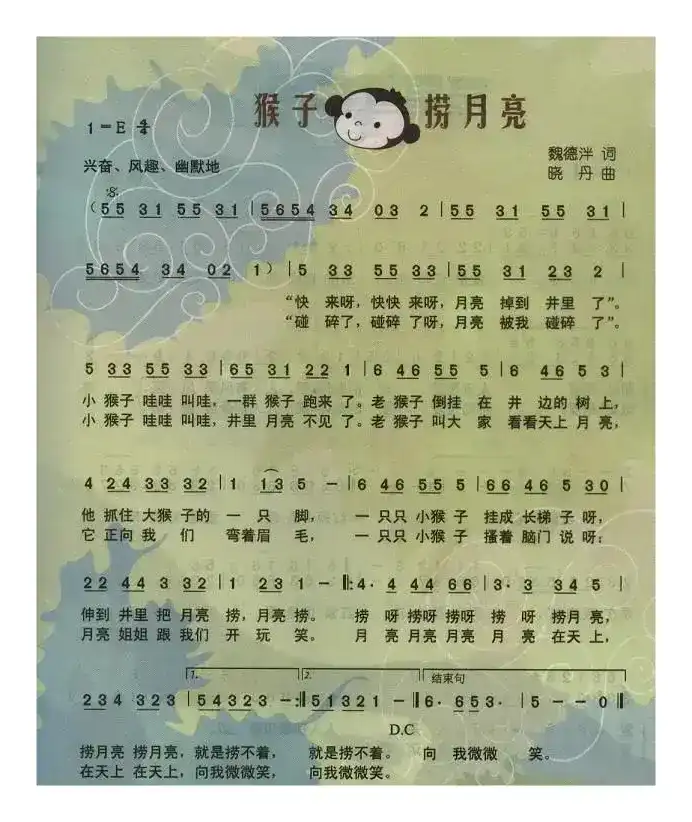 猴子捞月亮
1=E 4/4
魏德泮 词
兴奋、风趣、幽默地
晓丹 曲
(55 31 55 31 | 5654 34 03 2 | 55 31 55 31 |
5654 34 02 1) | 5 33 55 33 | 55 31 23 2 |
“快 来呀，快快 来呀，月亮 掉到 井里 了”。
“碰 碎了，碰碎 了呀，月亮 被我 碰碎 了”。
5 33 55 33 | 65 31 22 1 | 6 46 55 5 | 6 46 5 3 |
小 猴子 哇哇 叫哇，一群 猴子 跑来 了。老 猴子 倒挂 在 井 边的 树 上，
小 猴子 哇哇 叫哇，井里 月亮 不见 了。老 猴子 叫大 家 看 看天 上 月 亮，
4 24 33 32 | 1 13 5 - | 6 46 55 5 | 66 46 5 30 |
他 抓住 大猴 子的 一 只 脚， 一 只只 小猴 子 挂成 长梯 子 呀，
它 正向 我 们 弯着眉 毛， 一 只只 小猴 子 搔着 脑门 说 呀：
22 44 3 32 | 1 23 1 - |: 4· 4 44 66 | 3· 3 345 5 |
伸到 井里 把 月亮 捞，月亮 捞。 捞 呀 捞呀 捞呀 捞 呀 捞月 亮，
月亮 姐姐 跟 我们 开 玩 笑。 月 亮 月亮 月亮 月 亮 在天 上，
1. 2. 结束句
234 323 | 54323 - :| 51321 - | 6· 653· | 5 - - 0 ||
D.C
捞月亮 捞月亮，就是捞不着， 就是捞不着。 向 我微微 笑。
在天上 在天上，向我微微笑， 向我微微笑。